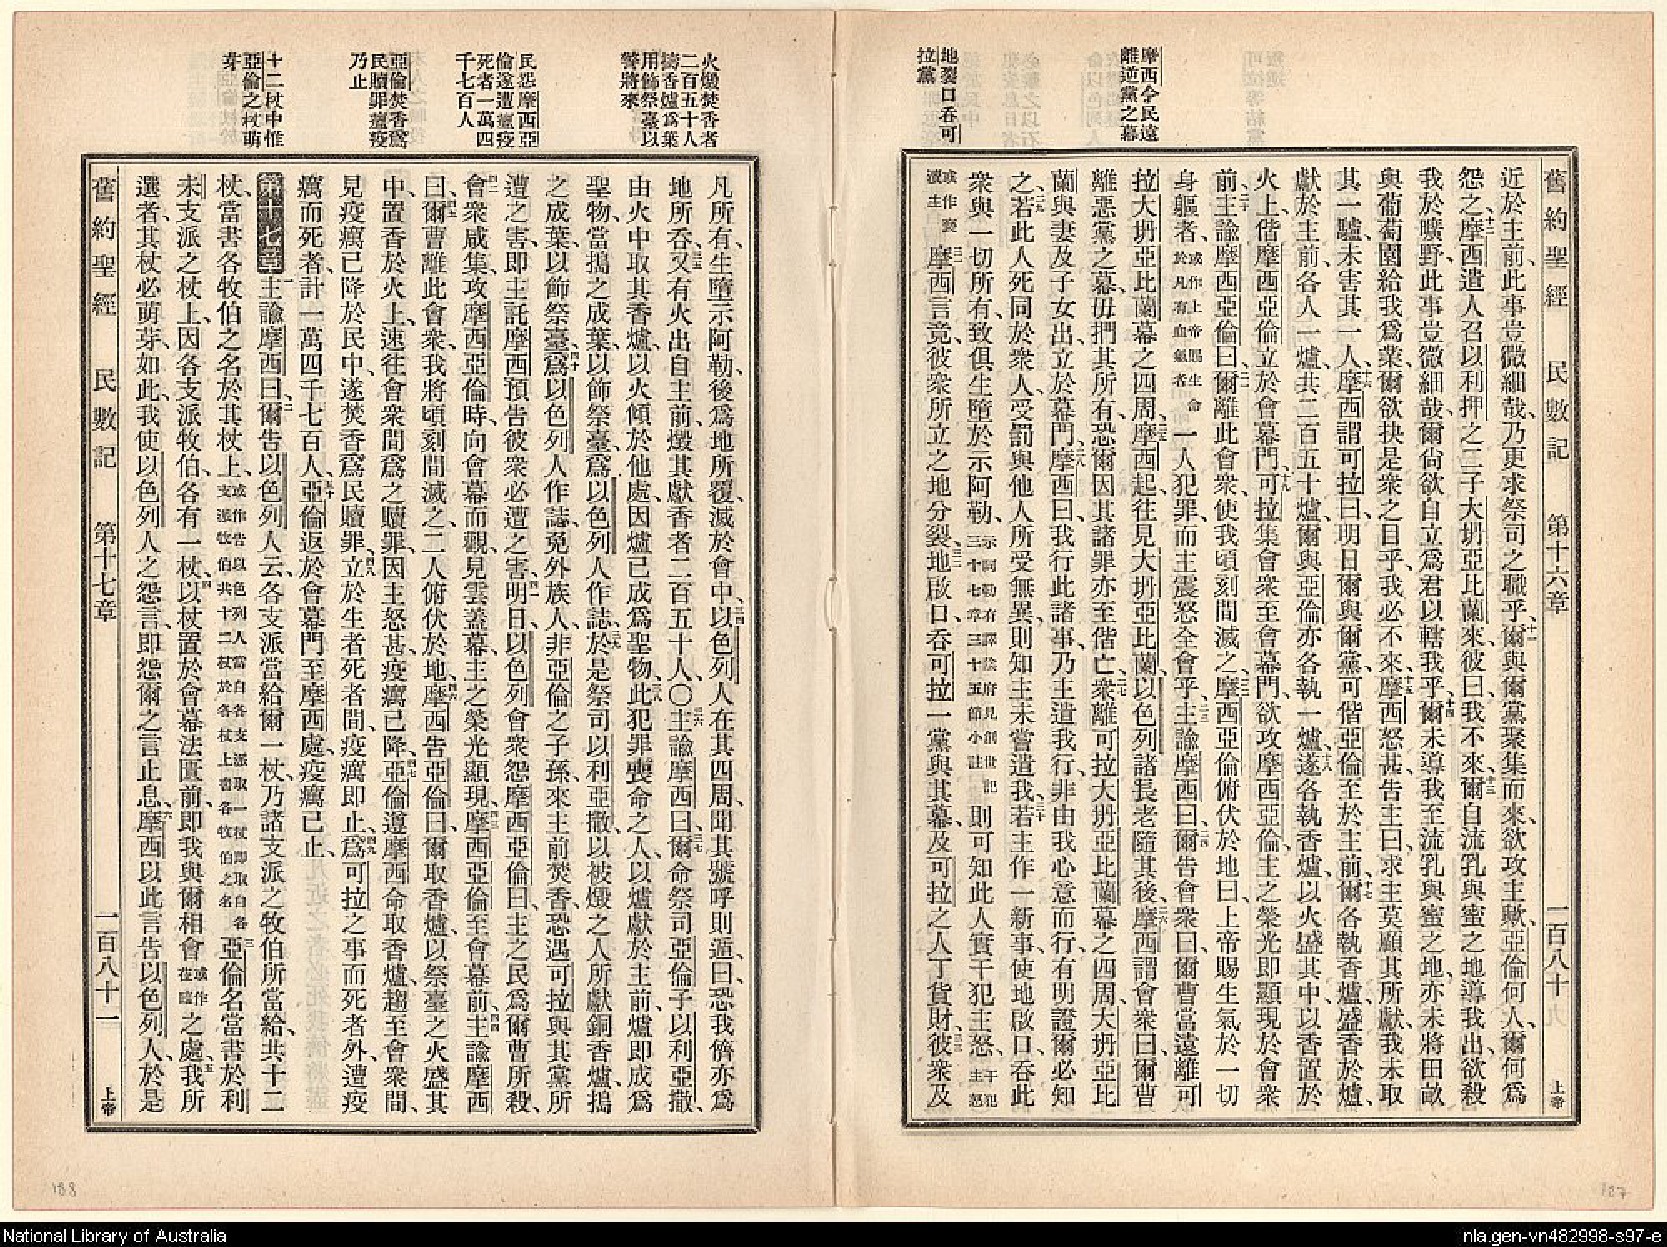 摩西令民遠
離逆黨之幕
地裂口吞可
拉黨
舊約聖經 民數記 第十六章 一百八十 上帝
近於主前、此事豈微細哉、乃更求祭司之職乎、十一爾與爾黨聚集而來、欲攻主歟、亞倫何人、爾何爲
怨之、十二摩西遣人召以利押之二子大坍亞比蘭來、彼曰、我不來、十三爾自流乳與蜜之地導我出、欲殺
我於曠野、此事豈微細哉、爾尙欲自立爲君以轄我乎、十四爾未導我至流乳與蜜之地、亦未將田畝
與葡萄園給我爲業、爾欲抉是衆之目乎、我必不來、十五摩西怒甚、告主曰、求主莫願其所獻、我未取
其一驢、未害其一人、十六摩西謂可拉曰、明日爾與爾黨、可偕亞倫至於主前、十七爾各執香爐、盛香於爐、
獻於主前、各人一爐、共二百五十爐、爾與亞倫亦各執一爐、十八遂各執香爐、以火盛其中、以香置於
火上、偕摩西亞倫立於會幕門、十九可拉集會衆至會幕門、欲攻摩西亞倫、主之榮光卽顯現於會衆
前、二十主諭摩西亞倫曰、二一爾離此會衆、使我頃刻間滅之、二二摩西亞倫俯伏於地曰、上帝賜生氣於一切
身軀者、或作上帝賜生命於凡有血氣者 一人犯罪、而主震怒全會乎、二三主諭摩西曰、二四爾告會衆曰、爾曹當遠離可
拉大坍亞比蘭幕之四周、二五摩西起、往見大坍亞比蘭、以色列諸長老隨其後、二六摩西謂會衆曰、爾曹
離惡黨之幕、毋捫其所有、恐爾因其諸罪亦至偕亡、二七衆離可拉大坍亞比蘭幕之四周、大坍亞比
蘭與妻及子女出、立於幕門、二八摩西曰、我行此諸事、乃主遣我行、非由我心意而行、有明證爾必知
之、二九若此人死同於衆人、受罰與他人所受無異、則知主未嘗遣我、三十若主作一新事、使地啟口吞此
衆與一切所有、致俱生墮於示阿勒、示阿勒有譯陰府見創世記三十七章三十五節小註 則可知此人實干犯主怒、干犯主怒
或作褻瀆主 三一摩西言竟、彼衆所立之地分裂、三二地啟口、吞可拉一黨與其幕、及可拉之人丁貨財、三三彼衆及
火燬焚香者
二百五十人
擣香爐爲葉
用飾祭臺以
警將來
民怨摩西亞
倫遂遭瘟疫
死者一萬四
千七百人
亞倫焚香爲
民贖罪瘟疫
乃止
十二杖中惟
亞倫之杖萌
芽
凡所有、生墮示阿勒、後爲地所覆、滅於會中、三四以色列人在其四周、聞其號呼則遁、曰、恐我儕亦爲
地所吞、三五又有火出自主前、燬其獻香者二百五十人、〇三六主諭摩西曰、三七爾命祭司亞倫子以利亞撒、
由火中取其香爐、以火傾於他處、因爐已成爲聖物、三八此犯罪喪命之人、以爐獻於主前、爐卽成爲
聖物、當搗之成葉、以飾祭臺、爲以色列人作誌、三九於是祭司以利亞撒、以被燬之人所獻銅香爐、搗
之成葉、以飾祭臺、四十爲以色列人作誌、免外族人、非亞倫之子孫、來主前焚香、恐遇可拉與其黨所
遭之害、卽主託摩西預告彼衆必遭之害、四一明日以色列會衆怨摩西亞倫曰、主之民爲爾曹所殺、
四二會衆咸集、攻摩西亞倫時、向會幕而觀、見雲蓋幕、主之榮光顯現、四三摩西亞倫至會幕前、四四主諭摩西
曰、四五爾曹離此會衆、我將頃刻間滅之、二人俯伏於地、四六摩西告亞倫曰、爾取香爐、以祭臺之火盛其
中、置香於火上、速往會衆間、爲之贖罪、因主怒甚、疫癘已降、四七亞倫遵摩西命、取香爐、趨至會衆間、
見疫癘已降於民中、遂焚香爲民贖罪、四八立於生者死者間、疫癘卽止、四九爲可拉之事而死者外、遭疫
癘而死者、計一萬四千七百人、五十亞倫返於會幕門、至摩西處、疫癘已止、
第十七章 一主諭摩西曰、二爾告以色列人云、各支派當給爾一杖、乃諸支派之牧伯所當給、共十二
杖、當書各牧伯之名於其杖上、或作告以色列人當自各支派取一杖卽取自各支派牧伯共十二杖於各杖上書各牧伯之名 三亞倫名當書於利
未支派之杖上、因各支派牧伯、各有一杖、四以杖置於會幕法匱前、卽我與爾相會或作蒞臨之處、五我所
選者、其杖必萌芽、如此、我使以色列人之怨言、卽怨爾之言止息、六摩西以此言告以色列人、於是
舊約聖經 民數記 第十七章 一百八十一 上帝
188
187
National Library of Australia
nla.gen-vn482998-s97-e